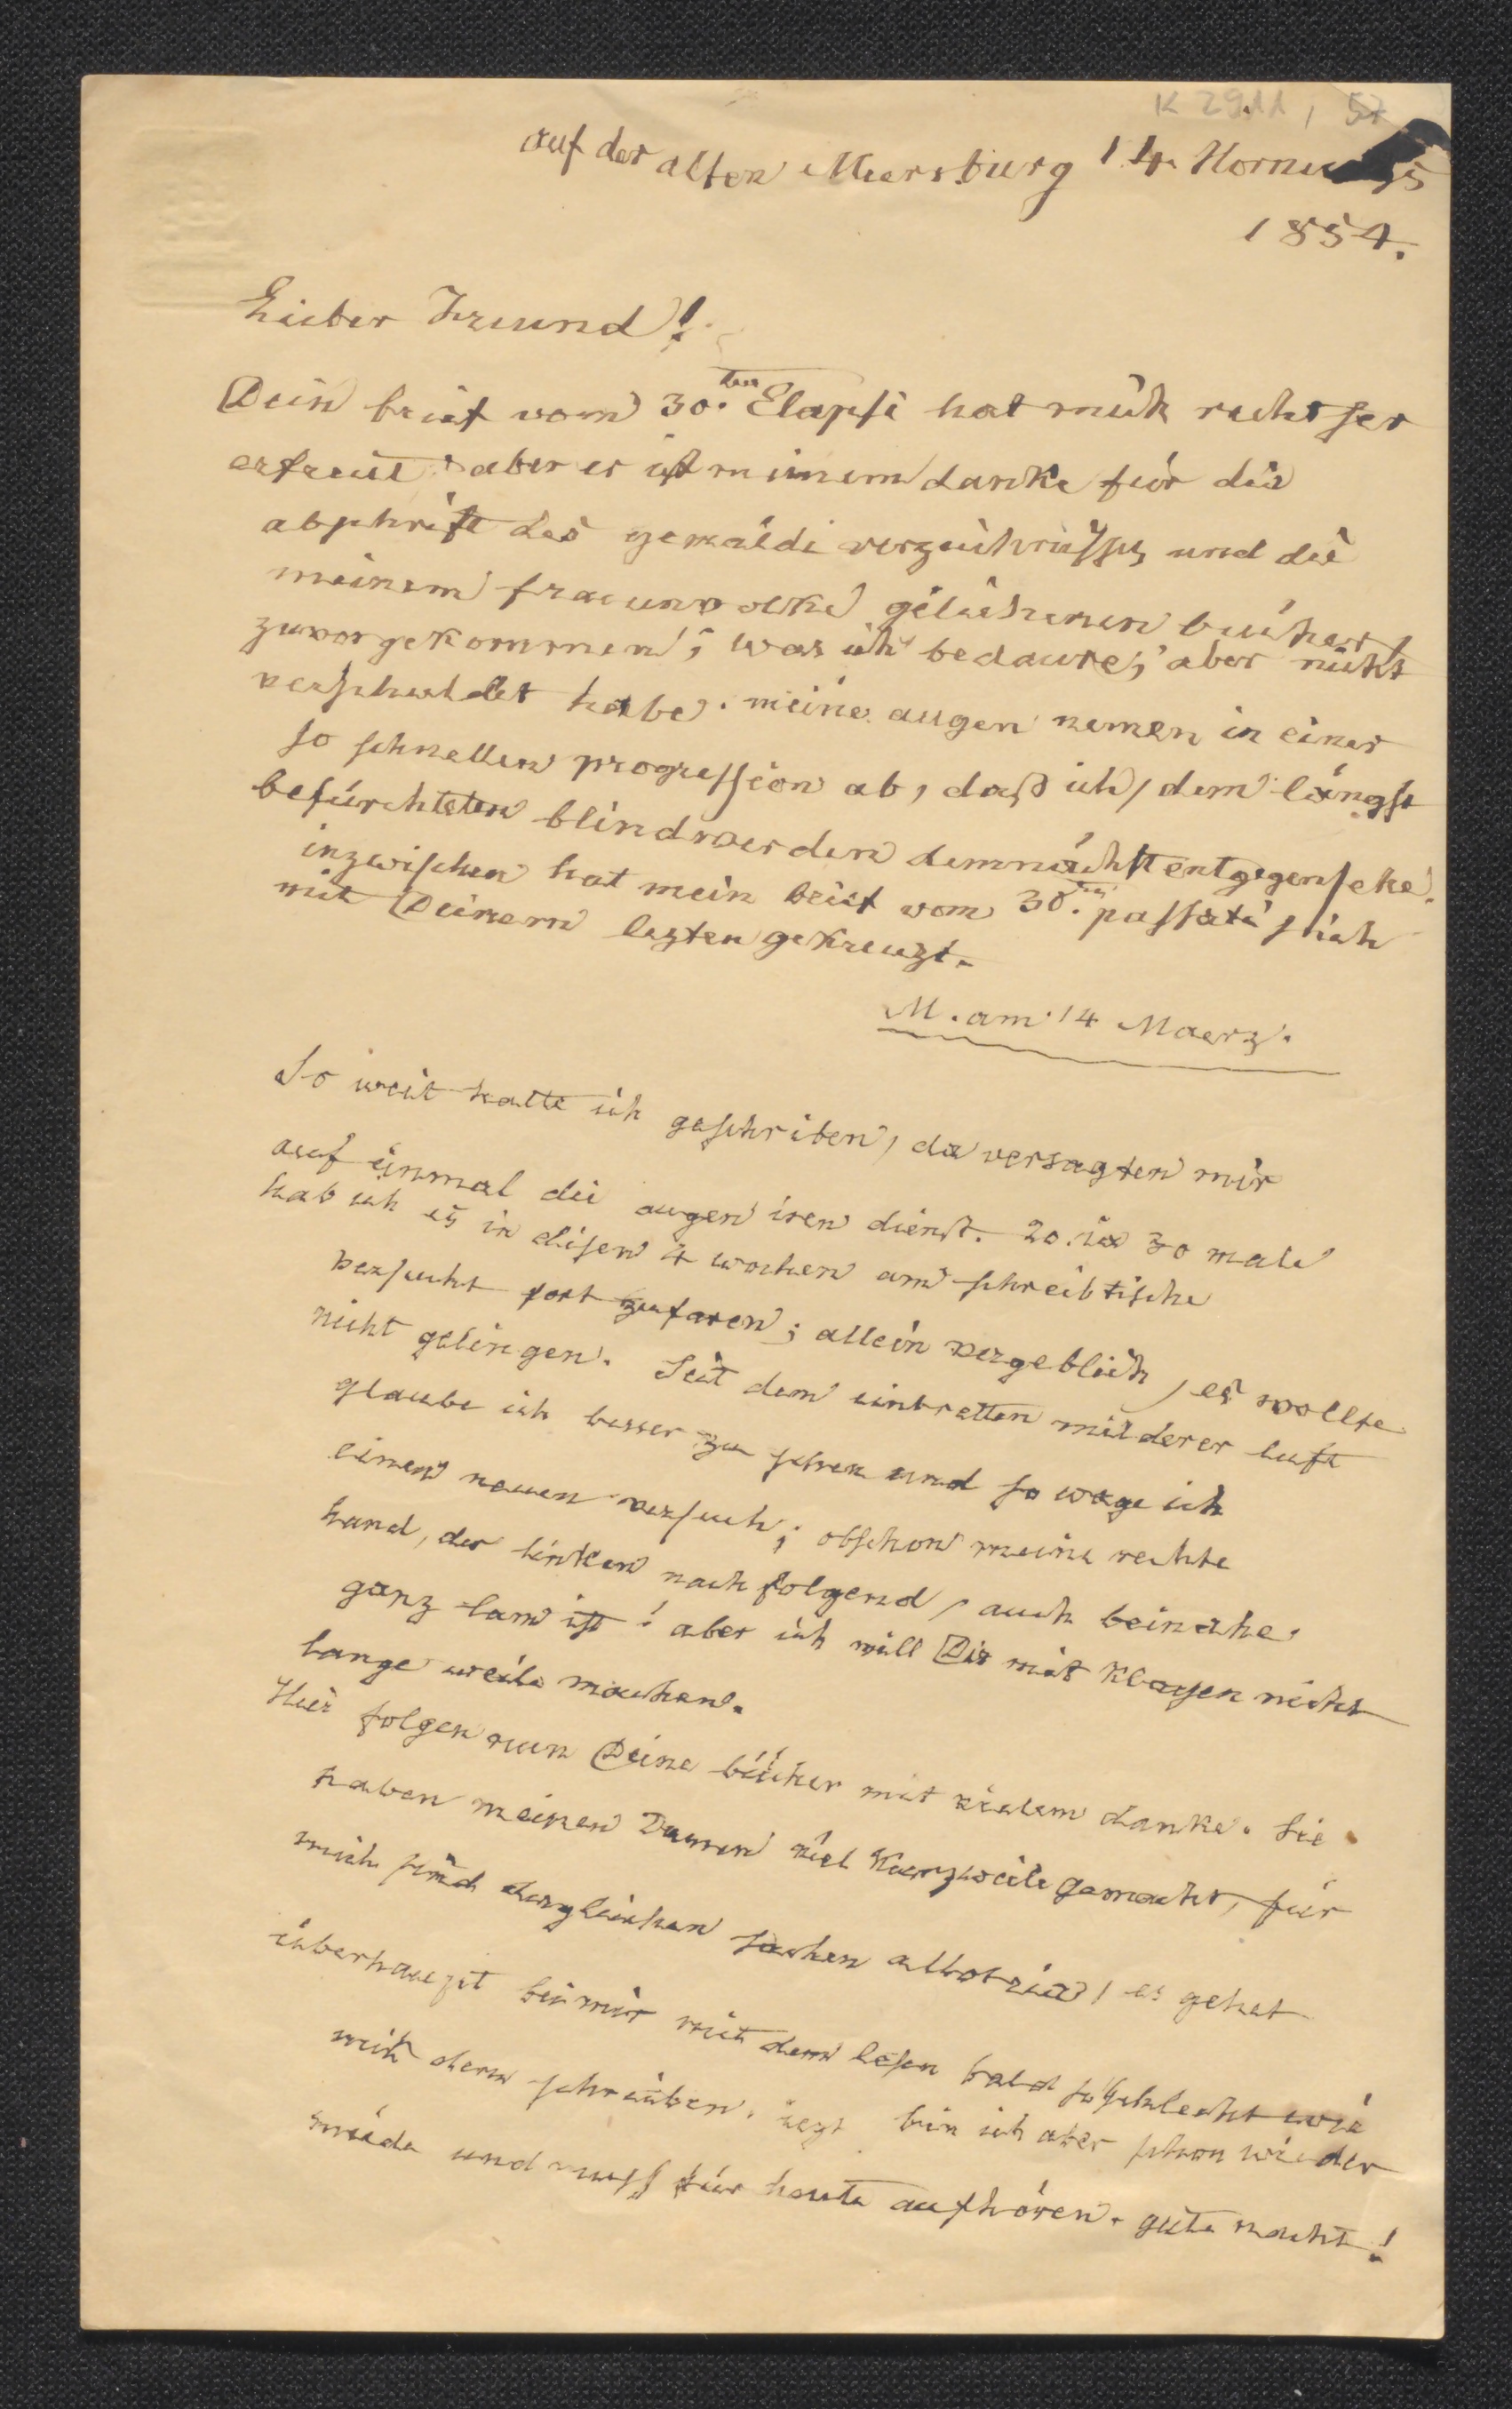 K 2911, 57
auf der alten Meersburg 14. Hornungs
1854.
Lieber Freund!
Dein brief vom 30.ten Elapsi hat mich recht ser
erfreut; aber er ist meinem danke für die
abschrift des gemäldeverzeichnisses und die
meinem frauenvolke geliehenen bücher
zuvorgekommen; was ich bedaure, aber nicht
verschuldet habe. meine augen nemen in einer
so schnellen progression ab, daß ich, dem längst
befürchteten blindwerden demnächst entgegensehe.
inzwischen hat mein brief vom 30.ten passati sich
mit Deinem lezten gekreuzt.
M. am 14 Maerz.
So weit hatte ich geschriben, da versagten mir
auf einmal die augen iren dienst. 20. bis 30 male
hab ich es in disen 4 wochen am schreibtische
versucht fort zu faren; allein vergeblich, es wollte
nicht gelingen. Seit dem eintretten milderer luft
glaube ich besser zu sehen und so wage ich
einen neuen versuch; obschon meine rechte
hand, der linken nachfolgend, auch beinahe
ganz lam ist! aber ich will Dir mit klagen nicht
lange weile machen.
Hier folgen nun Deine bücher mit vielem danke. Sie
haben meinen Damen viel Kurzweile gemacht, für
mich sind dergleichen sachen allotria, es gehet
überhaupt bei mir mit dem lesen bald so schlecht wie
mit dem schreiben. iezt bin ich aber schon wieder
müde und muss für heute aufhören. gute nacht!